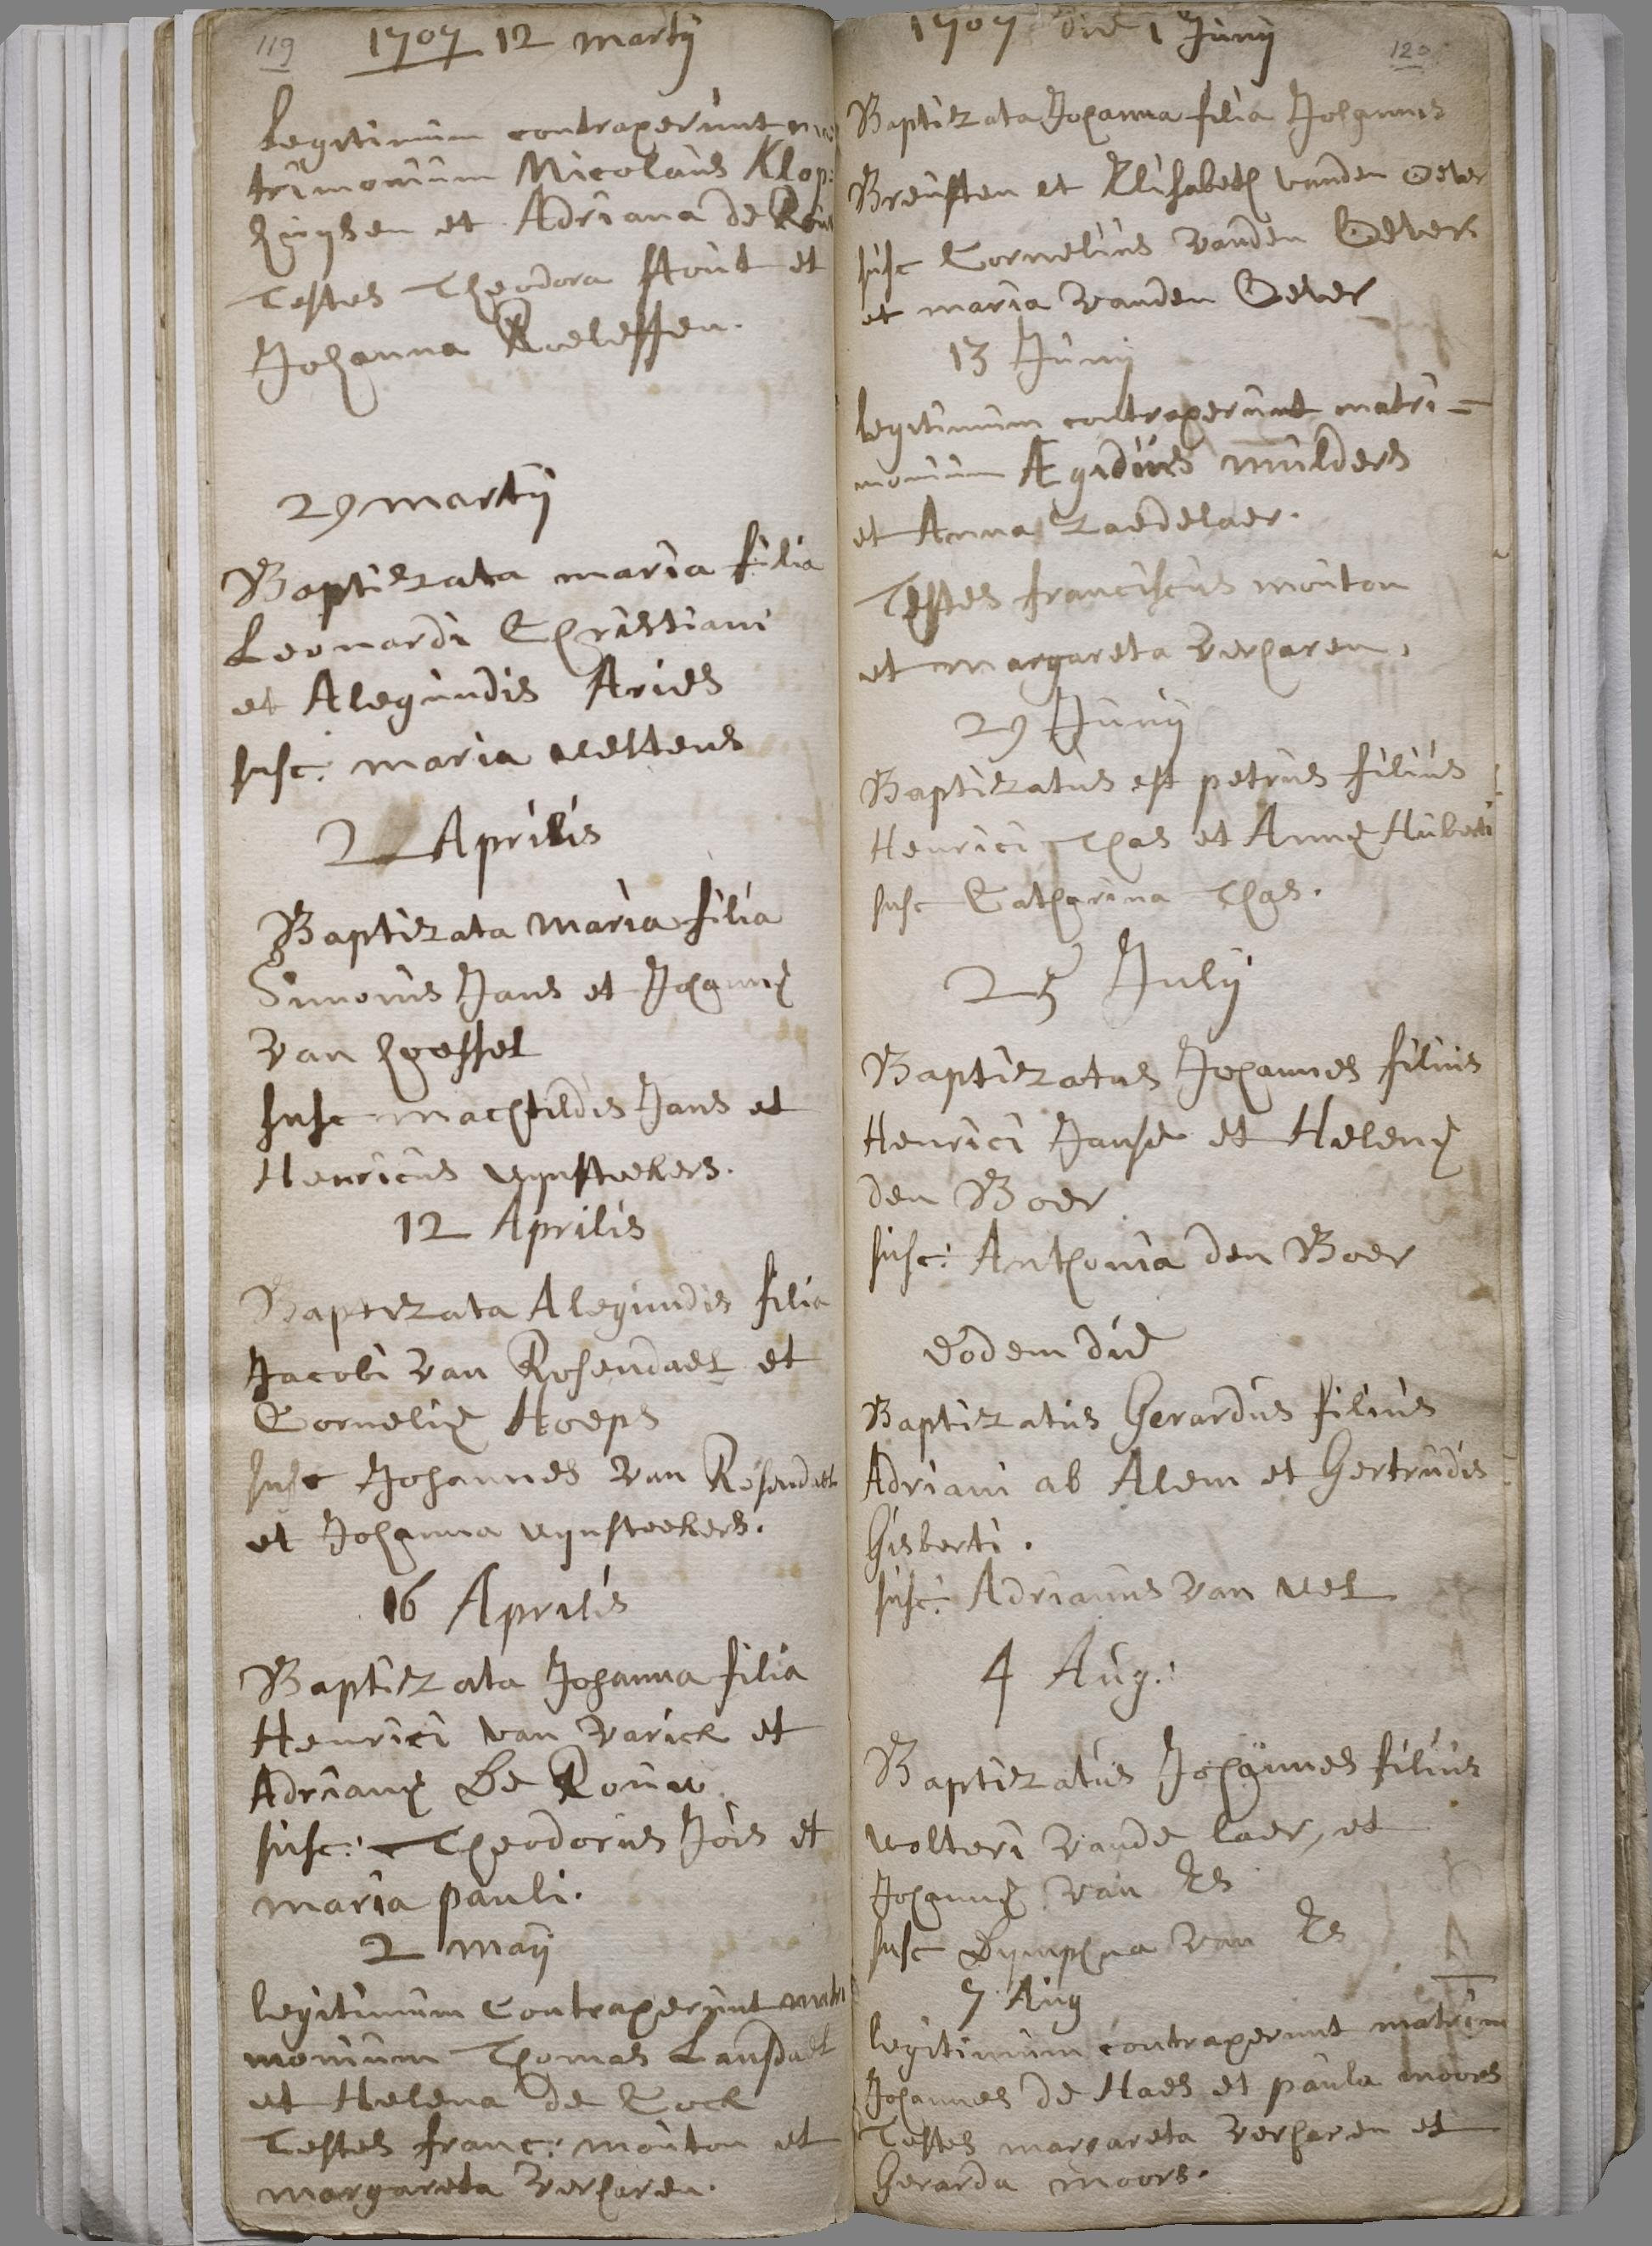 119
1707 12 martij
Legitimum contraxerunt ma
trimonium Nicolaus Klop:
huijsen et Adriana de Rou
Testes Theodora Stout et
Johanna Roeleffen.
29 martij
Baptizata maria filia
Leonardi Christiani
et Alegundis Aries
susc: maria veltens
2 Aprilis
Baptizata Maria filia
Simonis Jans et Johannę
van hoessel
susc Machtildis Jans et
Henricus Wijnsteekers.
12 Aprilis
Baptizata Alegundis filia
Jacobi van Rosendael et
Cornelię Hoeps
susc Johannes van Rosendael
et Johanna wijnsteekers.
16 Aprilis
Baptizata Johanna filia
Henrici van Varick et
Adrianę De Rouw
susc: Theodorus Jois et
maria pauli.
2 maij
legitimum Contraxerunt matri
monium Thomas Lansdael
et Helena de Cock
Testes franc: mouton et
margareta verharen.
1707 die 1 Junij
120
Baptizata Johanna filia Johannis
Breusten et Elisabeth vanden oever
susc Cornelius vanden Oever
et maria vanden Oever
13 Junij
legitimum contraxerunt matri-
monium Ægidius mulders
et Anna Zaedelaer.
Testes franciscus mouton
et margareta verharen.
29 Junij
Baptizatus est petrus filius
Henrici Thas et Annę Huberti
susc Catharina Thas.
25 July
Baptizatus Johannes filius
Henrici Janse et Helenę
den Boer
susc: Anthonia den Boer
eodem die
Baptizatus Gerardus filius
Adriani ab Alem et Gertrudis
Gisberti.
susc: Adrianus van vel
4 Aug:
Baptizatus Johannes filius
wolteri vande laer, et
Johannę van Es
susc Dymphna van Es
7 Aug
legitimum contraxerunt matrim
Johannes de Haes et paula moors
Testes margareta verharen et
Gerarda moors.